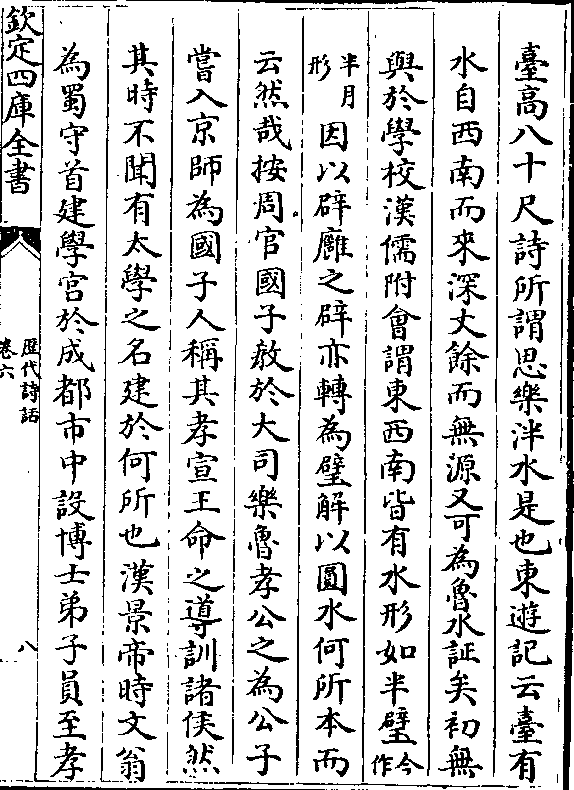 臺高八十尺詩所謂思樂泮水是也東遊記云臺有
水自西南而來深丈餘而無源又可為魯水証矣初無
與於學校漢儒附會謂東西南皆有水形如半璧今作
半月形因以辟廱之辟亦轉為璧解以圓水何所本而
云然哉按周官國子教於大司樂魯孝公之為公子
嘗入京師為國子人稱其孝宣王命之導訓諸侯然
其時不聞有太學之名建於何所也漢景帝時文翁
為蜀守首建學宮於成都市中設博士弟子員至孝
欽定四庫全書
歷代詩話
卷六
八